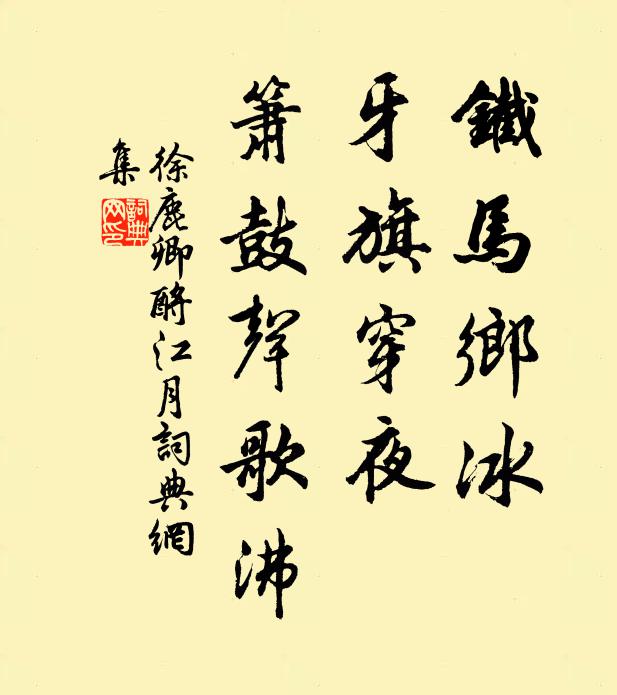 鐵馬鄉冰
牙旗穿夜
箫鼓聲歌沸
徐鹿卿酹江月詞典網
集
詞典
网印